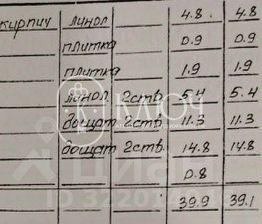 кирпич линол 4.8 4.8
плитка 0.9 0.9
плитка 1.9 1.9
линол 2ств. 5.4 5.4
дощат 2ств. 11.3 11.3
дощат 2ств. 14.8 14.8
0.8
39.9 39.1
КЛЮЧ
циан